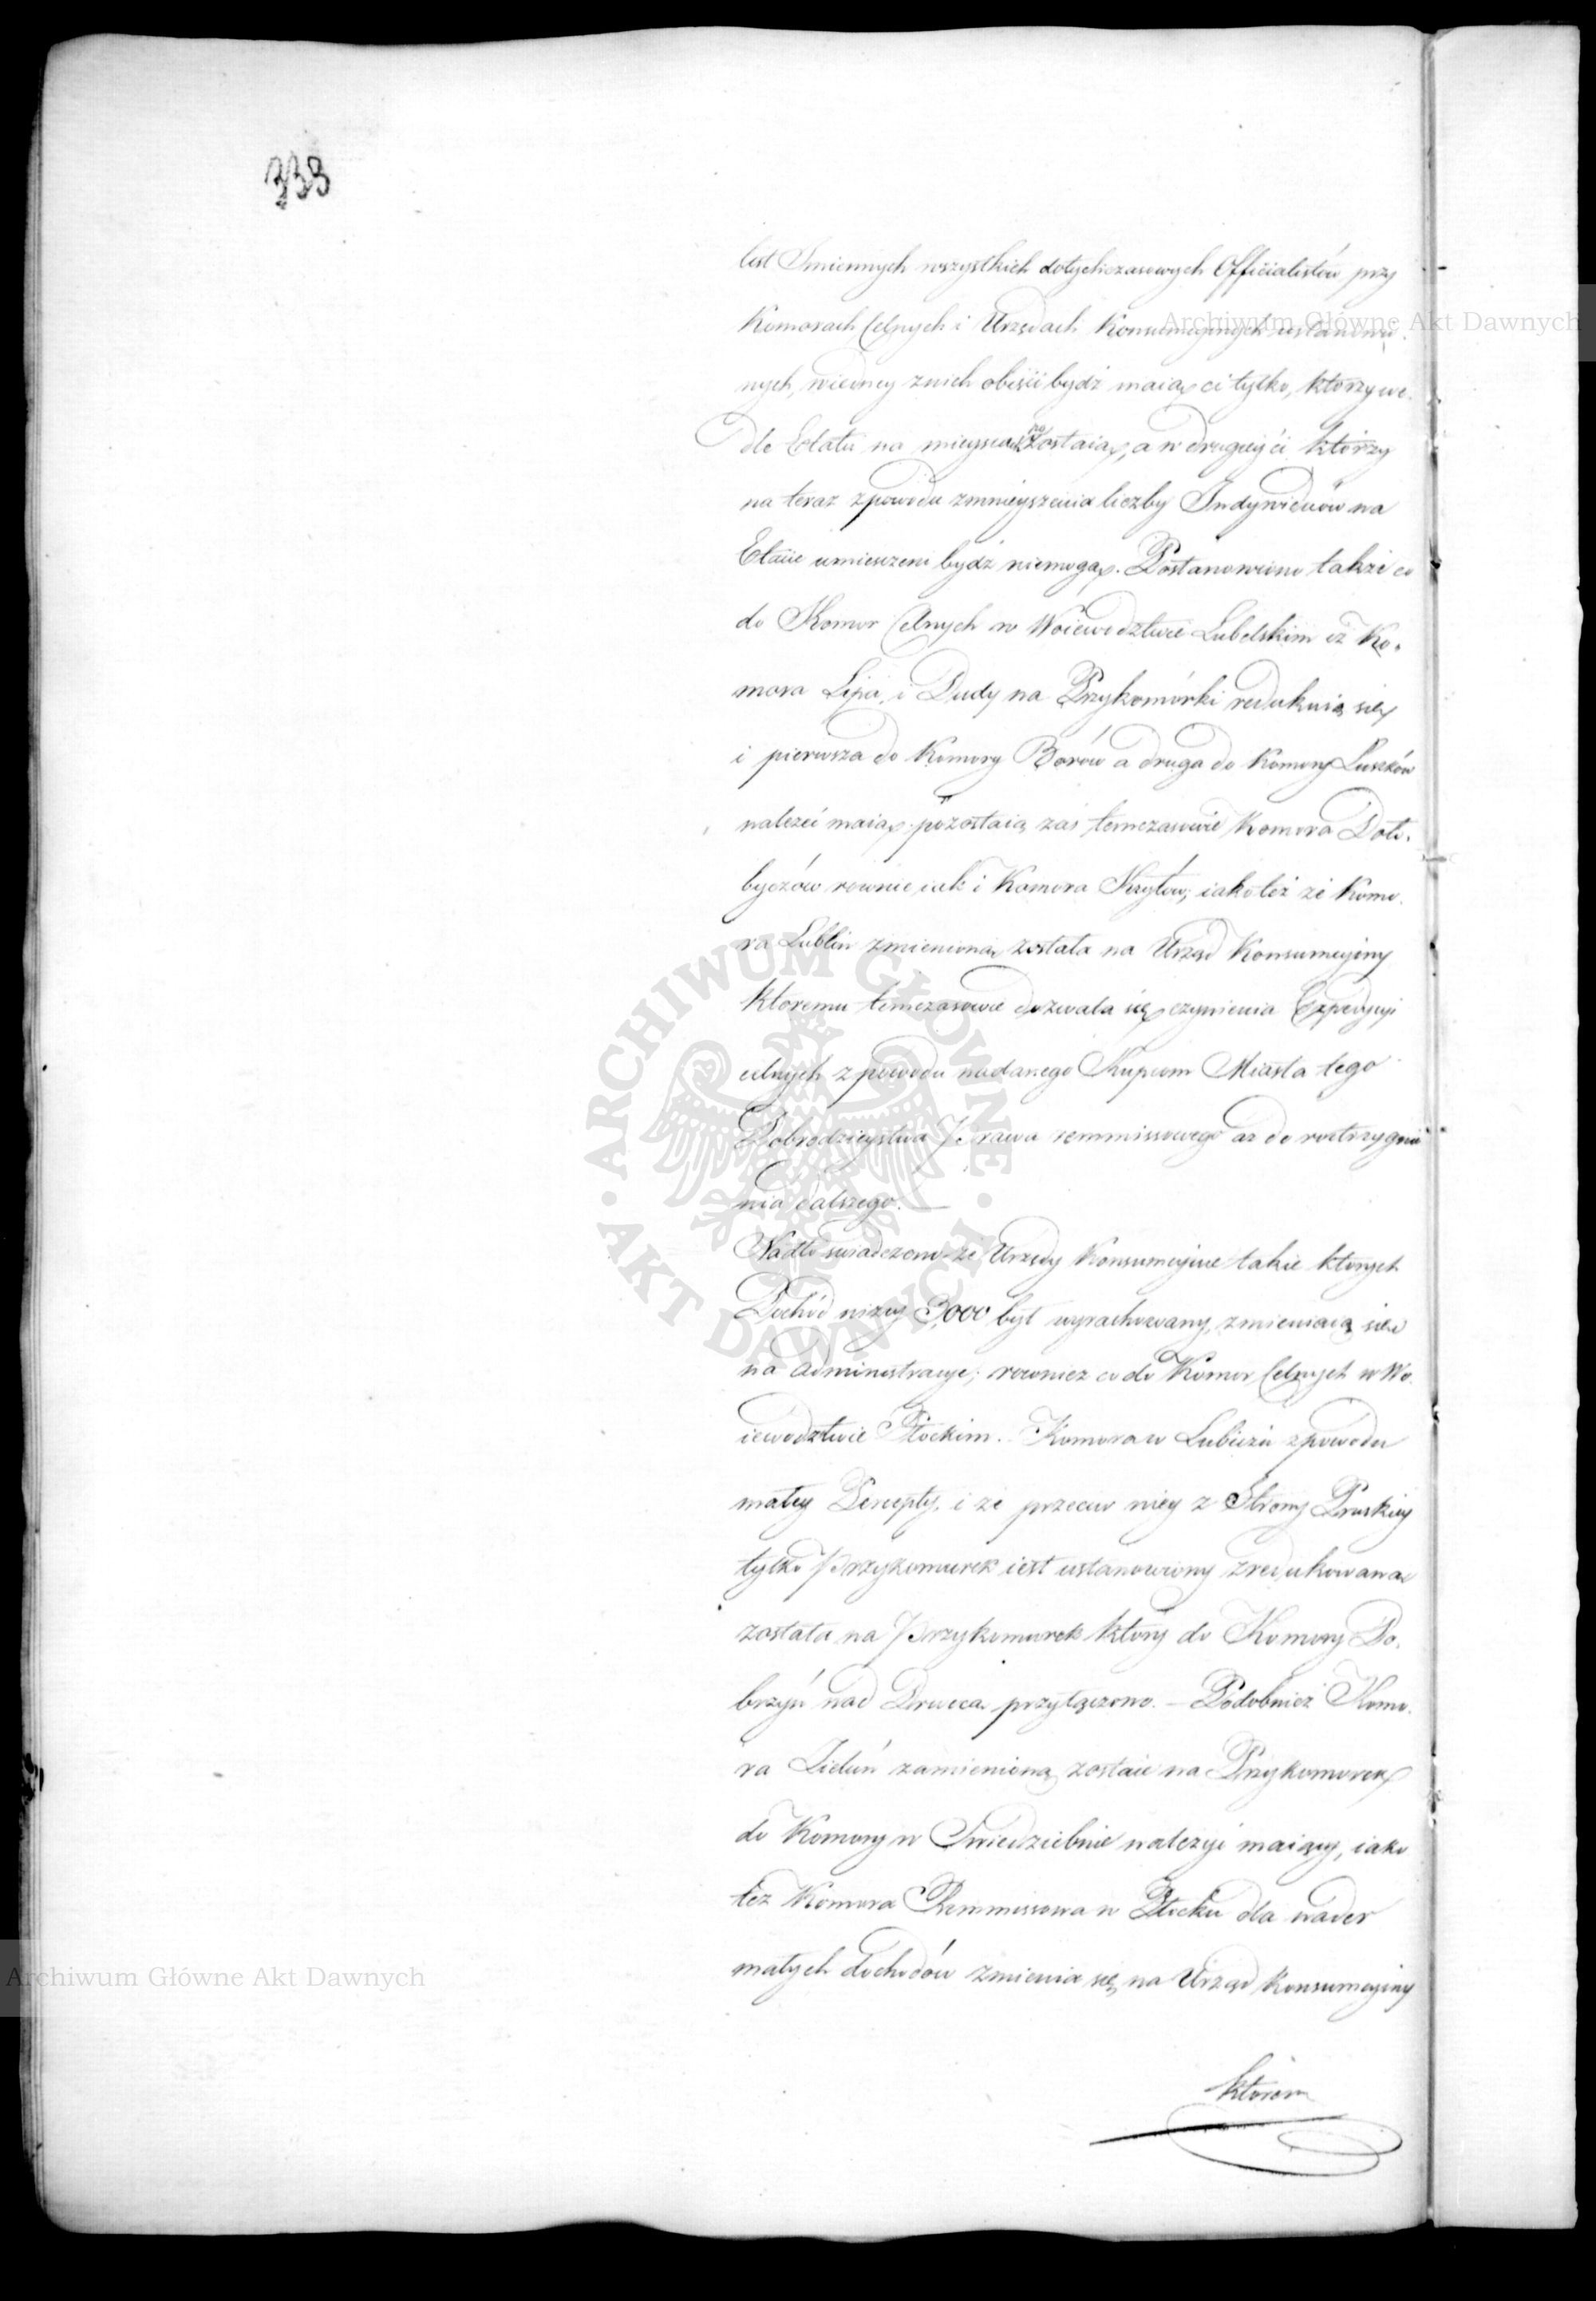 333
list Imiennych wszystkich dotychczasowych Officialistów przy
Komorach Celnych i Urzędach Konsumcyinych ustanowio
nych, wiedney znich obięci bydź maią ci tylko, którzy we-
dle Etatu na mieyscach pozostaią, a w drugiey ci którzy
na teraz zpowodu zmnieyszenia liczby Indywiduów na
Etacie umieszczeni bydź niemogą. Postanowiono także co
do Komor Celnych w Woiewodztwie Lubelskim iż Ko-
mora Lipa, i Dudy na Przykomórki redukuią się
i pierwsza do Komory Borów a druga do Komory Luszków
należeć maią. pozostaią zaś temczasowie Komora Doło-
byczów rownie iak i Komora Kryłów, iakoteż że Komo-
ra Lublin zmieniona została na Urząd Konsumcyiny
ktoremu temczasowie dozwala się czynienia Expedycyi
celnych z powodu nadanego Kupcom Miasta tego
Dobrodzieystwa Prawa remmissowego aż do rostrzygnie
nia dalszego. —
Nadto że Urzędy Konsumcyine takie ktorych
Dochód niżey 3,000 był wyrachowany, zmieniaią się
na administracye; rownież co do Komor Celnych w Wo-
iewodztwie Płockim. Komora w Lubiczu zpowodu
małey Percepty, i że przeciw niey z Strony Pruskiey
tylko Przykomurek iest ustanowiony zredukowana
została na Przykomurek który do Komory Do-
brzyń nad Drwęcą przyłączono. — Podobnież Komo-
ra Zieluń zamienioną zostaie na Przykomorek
do Komory w Swiedziebnie należyć maiący, iako
też Komora Remmissowa w Płocku dla nader
małych dochodów zmienia się na Urząd Konsumcyiny
któren
Archiwum Główne Akt Dawnych
Archiwum Główne Akt Dawnych
ARCHIWUM GŁÓWNE · AKT DAWNYCH ·